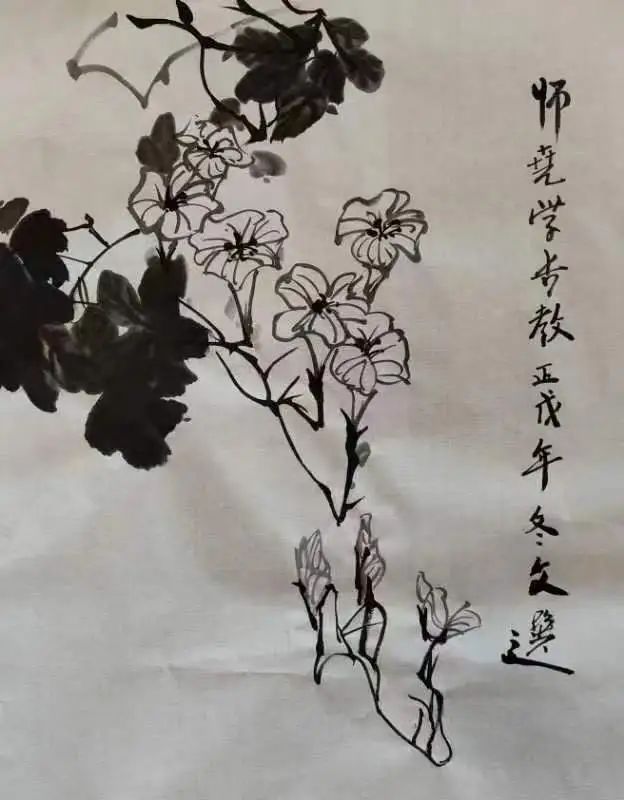 师尧学长教正戊年冬文选